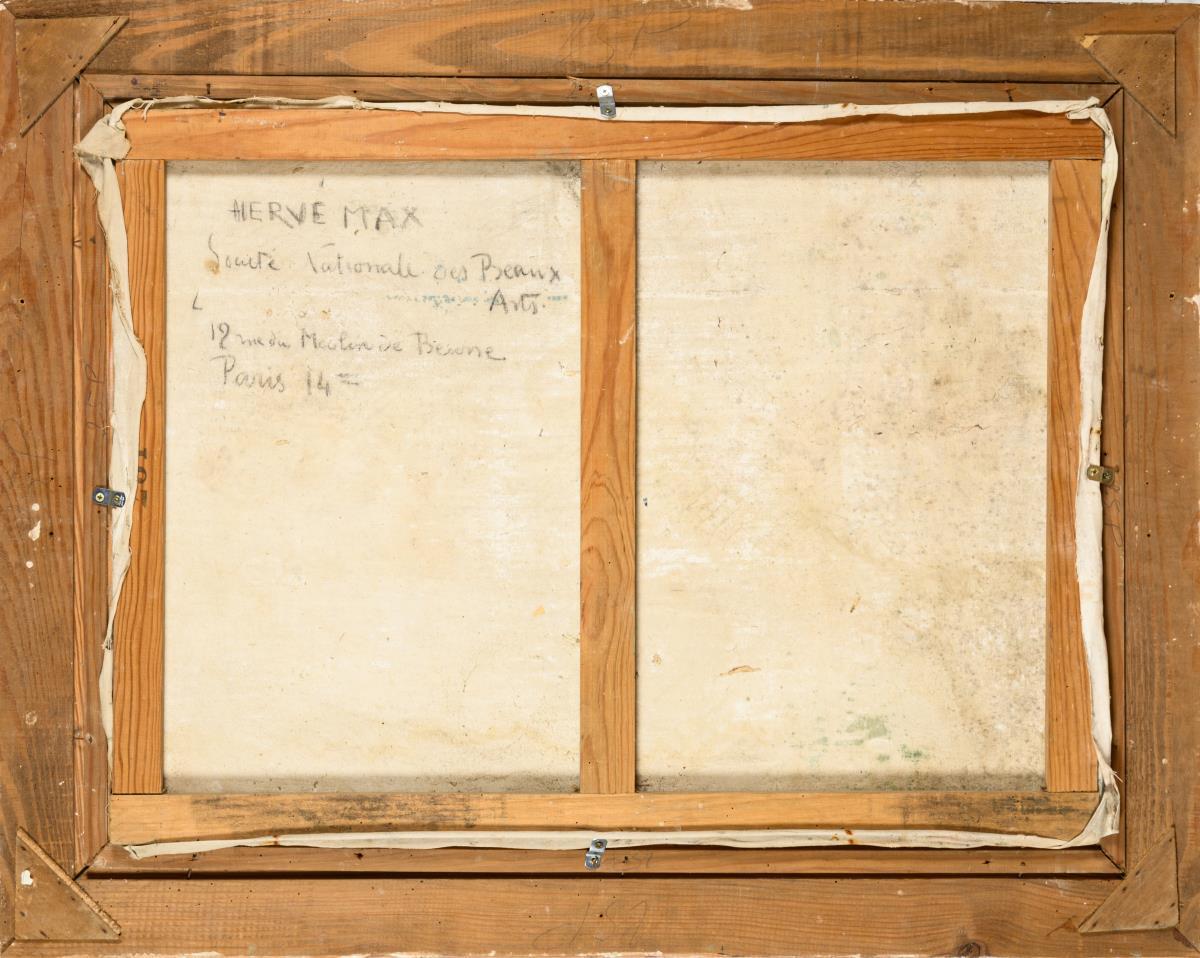 HERVE MAX
Société Nationale des Beaux
Arts.
12 rue du Moulin de Beurre
Paris 14=